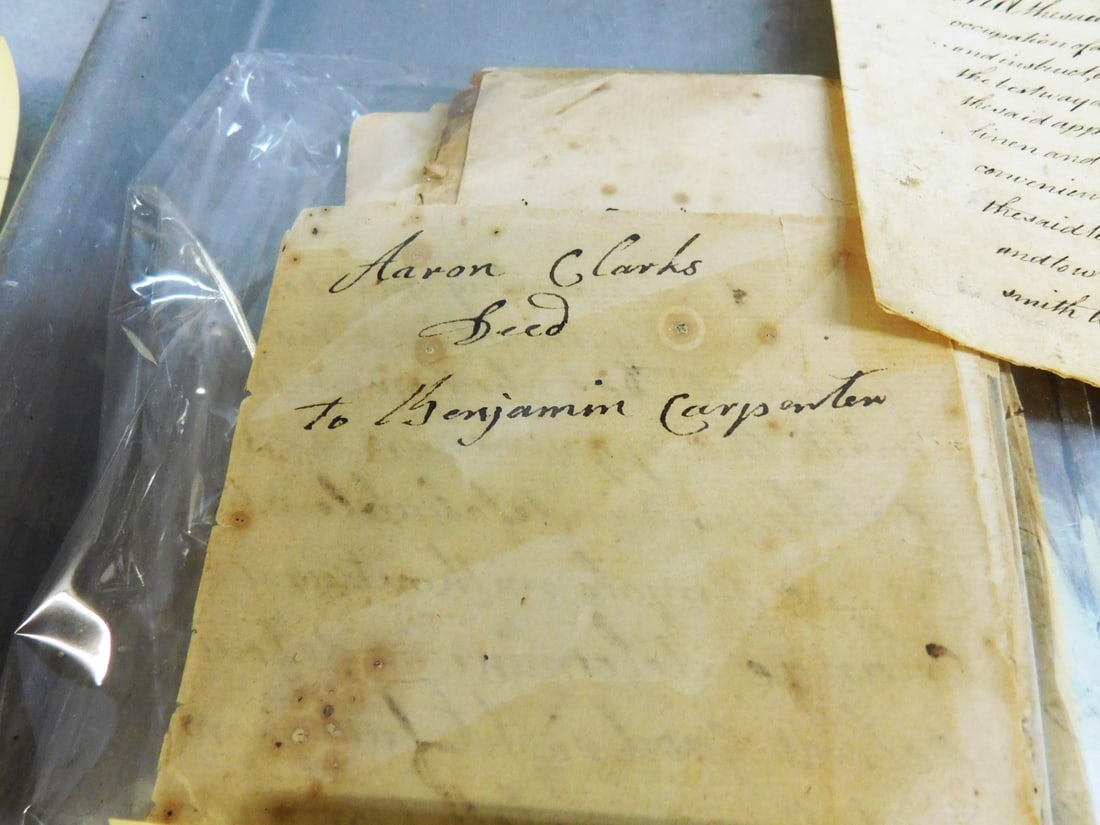 Aaron Clarks
Deed
to Benjamin Carpenter
the said
occupation of
and instruct
the best way
the said app
linen and
convenien
the said
and
smith